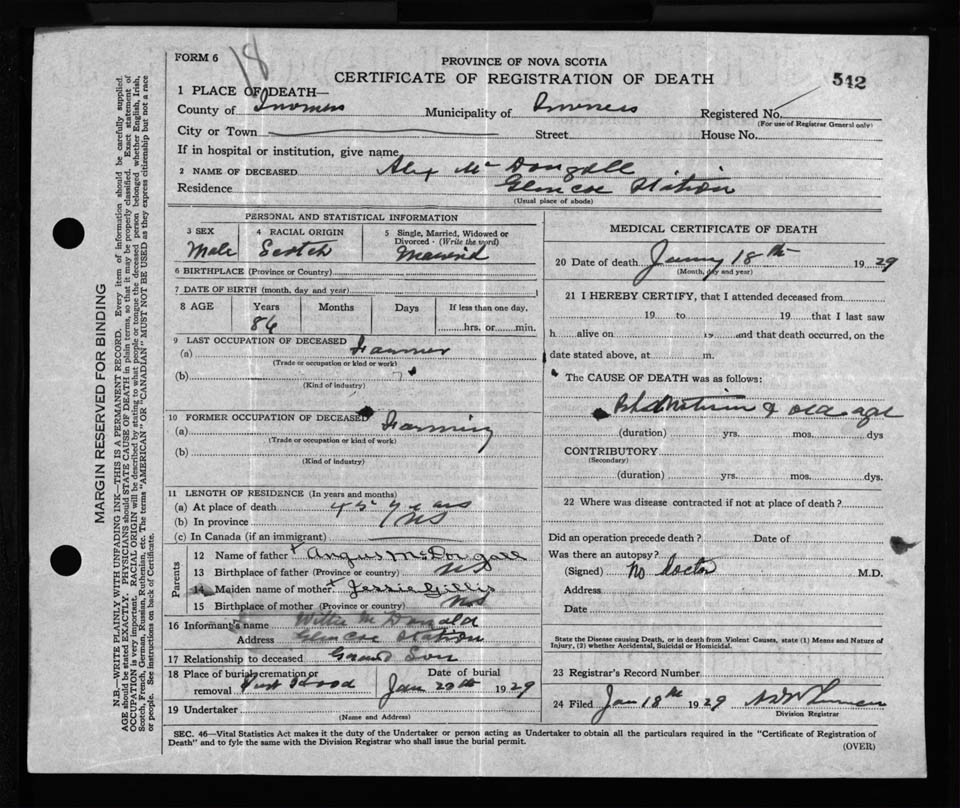 FORM 6
18
PROVINCE OF NOVA SCOTIA
CERTIFICATE OF REGISTRATION OF DEATH
542
1 PLACE OF DEATH—
County of Inverness Municipality of Inverness Registered No.
(For use of Registrar General only)
City or Town Street House No.
If in hospital or institution, give name
2 NAME OF DECEASED Alex Mc Dougall
Residence Glencoe Station
(Usual place of abode)
PERSONAL AND STATISTICAL INFORMATION
3 SEX 4 RACIAL ORIGIN 5 Single, Married, Widowed or Divorced - (Write the word)
Male Scotch Married
6 BIRTHPLACE (Province or Country)
7 DATE OF BIRTH (month, day and year)
8 AGE Years Months Days If less than one day,
86 hrs. or min.
9 LAST OCCUPATION OF DECEASED
(a) Farmer
(Trade or occupation or kind or work)
(b)
(Kind of industry)
10 FORMER OCCUPATION OF DECEASED
(a) Farming
(Trade or occupation or kind of work)
(b)
(Kind of industry)
11 LENGTH OF RESIDENCE (In years and months)
(a) At place of death 45 years
(b) In province NS
(c) In Canada (if an immigrant)
Parents
12 Name of father Angus McDougall
13 Birthplace of father (Province or country) NS
14 Maiden name of mother Jessie Gillis
15 Birthplace of mother (Province or country) NS
16 Informant's name Willie Mc Donald
Address Glencoe Station
17 Relationship to deceased Grand Son
18 Place of burial, cremation or removal Port Hood Date of burial
Jan 20th 1929
19 Undertaker
(Name and Address)
MEDICAL CERTIFICATE OF DEATH
20 Date of death 18th 1929
(Month, day and year)
21 I HEREBY CERTIFY, that I attended deceased from
19 to 19 that I last saw
h alive on 19 and that death occurred, on the
date stated above, at m.
The CAUSE OF DEATH was as follows:
& old age
(duration) yrs. mos. dys
CONTRIBUTORY
(Secondary)
(duration) yrs. mos. dys.
22 Where was disease contracted if not at place of death?
Did an operation precede death? Date of
Was there an autopsy?
(Signed) No Doctor M.D.
Address
Date
State the Disease causing Death, or in death from Violent Causes, state (1) Means and Nature of
Injury, (2) whether Accidental, Suicidal or Homicidal.
23 Registrar's Record Number
24 Filed Jan 18th 1929
Division Registrar
SEC. 46—Vital Statistics Act makes it the duty of the Undertaker or person acting as Undertaker to obtain all the particulars required in the "Certificate of Registration of
Death" and to fyle the same with the Division Registrar who shall issue the burial permit.
(OVER)
MARGIN RESERVED FOR BINDING
N.B.—WRITE PLAINLY WITH UNFADING INK—THIS IS A PERMANENT RECORD. Every item of information should be carefully supplied.
AGE should be stated EXACTLY. PHYSICIANS should STATE CAUSE OF DEATH in plain terms, so that it may be properly classified. Exact statement of
OCCUPATION is very important. RACIAL ORIGIN will be described by stating to what people or tongue the deceased person belonged whether English, Irish,
Scotch, French, German, Russian, Ruthenian, etc. The terms "AMERICAN" OR "CANADIAN" MUST NOT BE USED as they express citizenship but not a race
or people. See instructions on back of Certificate.